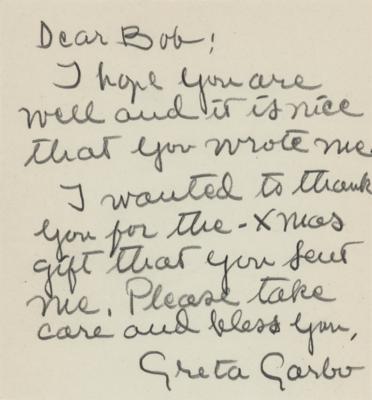 Dear Bob;
I hope you are
well and it is nice
that you wrote me
I wanted to thank
you for the -Xmas
gift that you sent
me. Please take
care and bless you,
Greta Garbo